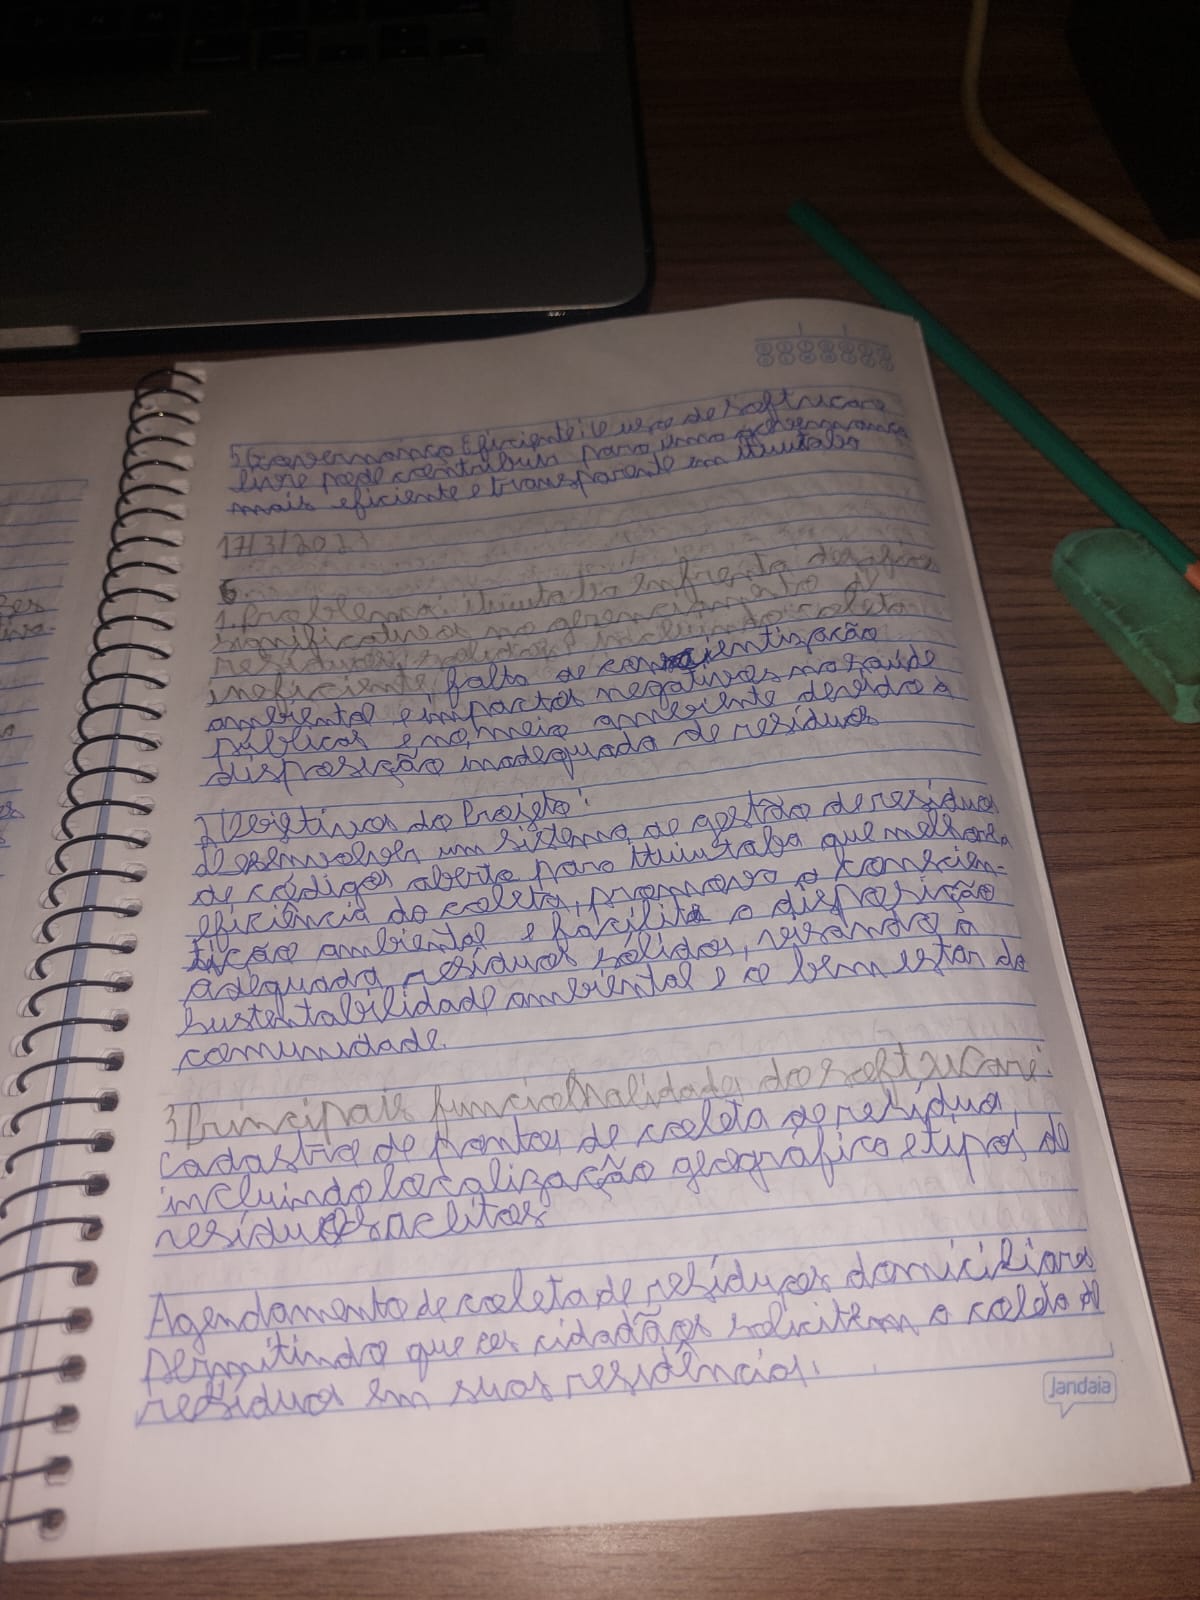 5 Governança Eficiente: O uso de software
livre pode contribuir para uma governança
mais eficiente e transparente em ituiutaba
17/3/202
6
1. Problema: ituiutaba enfrenta desafios
significativos no gerenciamento de
resíduos sólidos, incluindo coleta
ineficiente, falta de conscientização
ambiental, e impactos negativos na saúde
públicas e no meio ambiente devido a
disposição inadequada de resíduos
2 Objetivos do Projeto:
desenvolver um sistema de gestão de resíduos
de códigos aberto para ituiutaba que melhore a
eficiência da coleta, promova a conscien-
tição ambiental e facilite a disposição
adequada resíduos sólidos, visando a
sustentabilidade ambiental e o bem estar da
comunidade.
3 Principais funcionalidades do software:
cadastro de pontos de coleta de resíduo,
incluindo localização geográfica e tipos de
resíduos aceitos
Agendamento de coleta de resíduos domiciliares
permitindo que os cidadãos solicitem a coleta de
resíduos em suas residências.
Jandaia